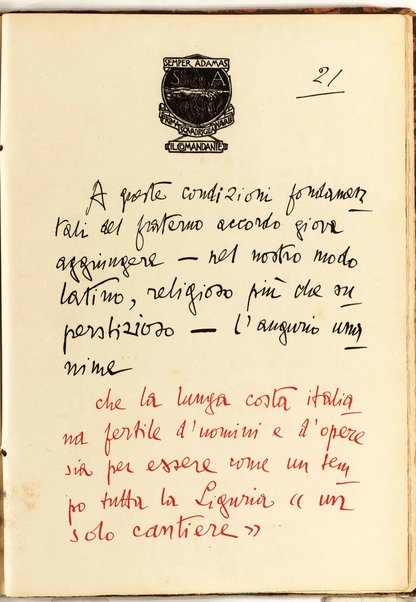 SEMPER ADAMAS
S A
PRIMA SQUADRIGLIA NAVALE
IL COMANDANTE
21
A queste condizioni fondamen
tali del fraterno accordo giova
aggiungere — nel nostro modo
latino, religioso più che su
perstizioso — l'augurio una
nime
che la lunga costa italia
na fertile d'uomini e d'opere
sia per essere come un tem
po tutta la Liguria « un
solo cantiere »